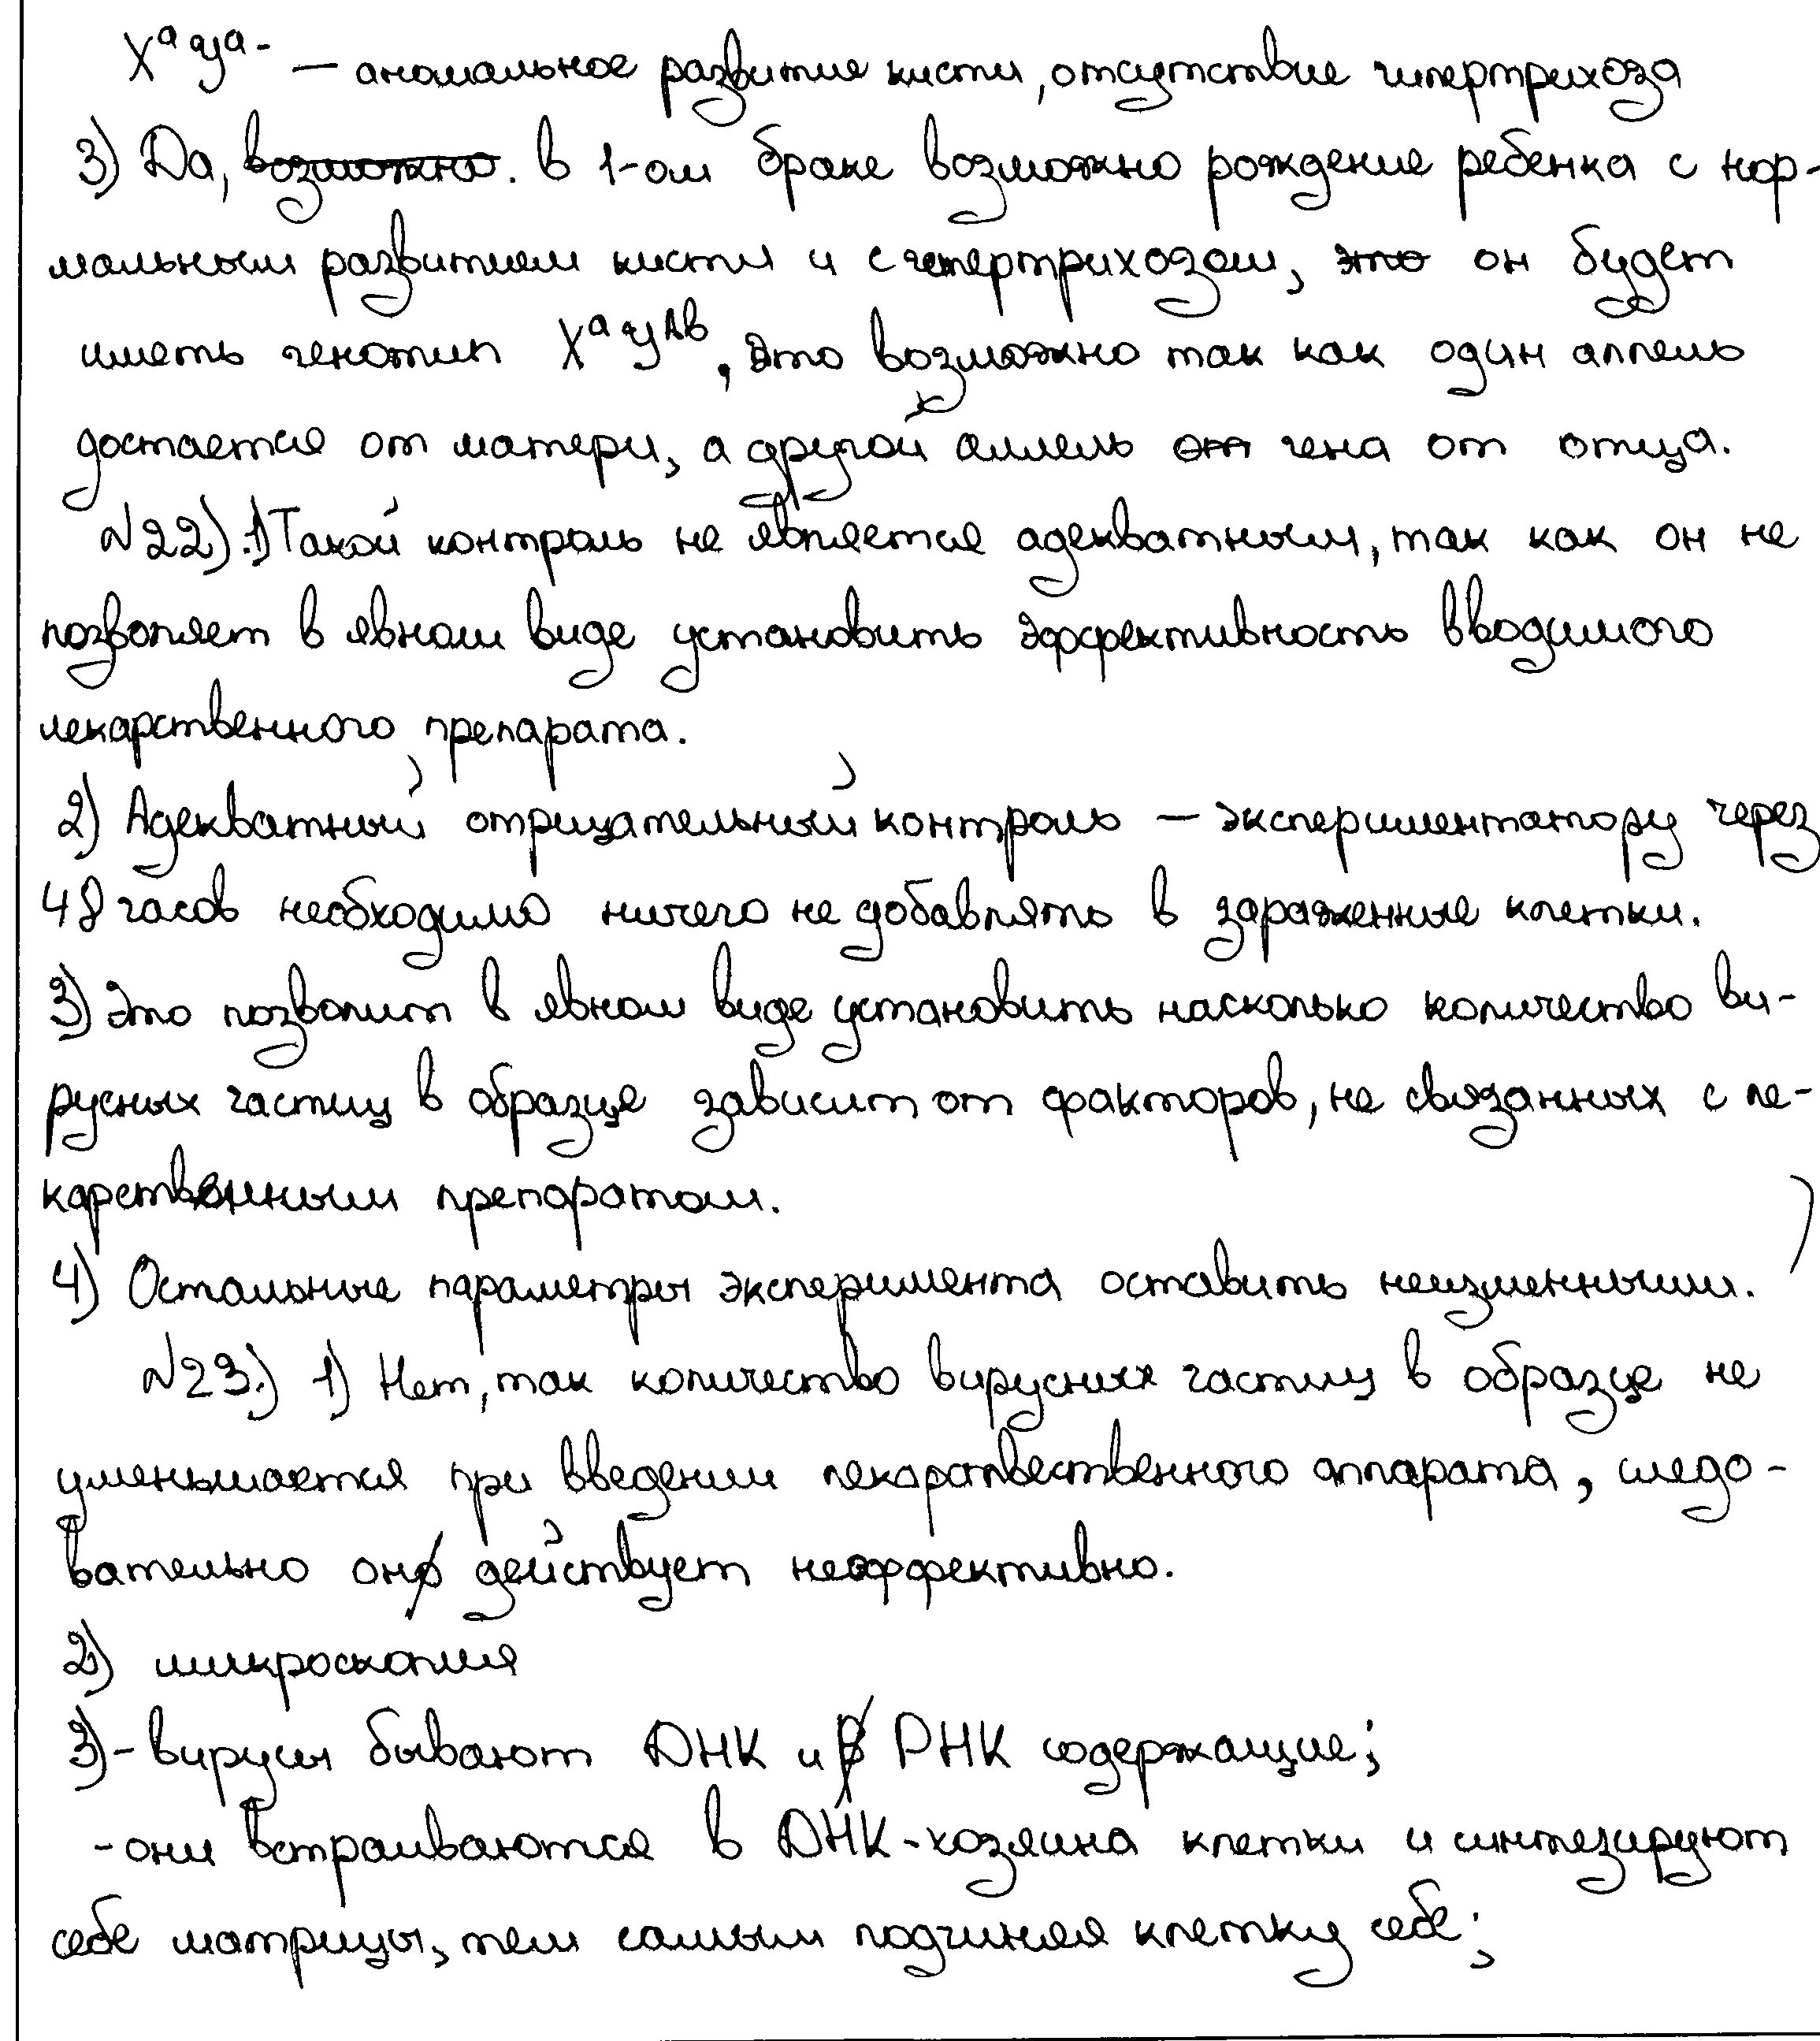 Xᵃ Yᵃ⁻ — аномальное развитие кисти, отсутствие гипертрихоза
3) Да, возможно. в 1-ом браке возможно рождение ребенка с нор-
мальным развитием кисти и с гипертрихозом, это он будет
иметь генотип Xᵃ Yᴬᵇ, это возможно так как один аллель
достается от матери, а другой аллель от гена от отца.
№22). 1) Такой контроль не является адекватным, так как он не
позволяет в явном виде установить эффективность вводимого
лекарственного препарата.
2) Адекватный отрицательный контроль — экспериментатору через
48 часов необходимо ничего не добавлять в зараженные клетки.
3) Это позволит в явном виде установить насколько количество ви-
русных частиц в образце зависит от факторов, не связанных с ле-
карственным препаратом.
4) Остальные параметры эксперимента оставить неизменными.
№23.) 1) Нет, так количество вирусных частиц в образце не
уменьшается при введении лекарствественного аппарата, следо-
вательно он действует неэффективно.
2) микроскопия
3) - вирусы бывают ДНК и РНК содержащие;
- они встраиваются в ДНК-хозяина клетки и синтезируют
себе матрицы, тем самым подчиняя клетку себе;